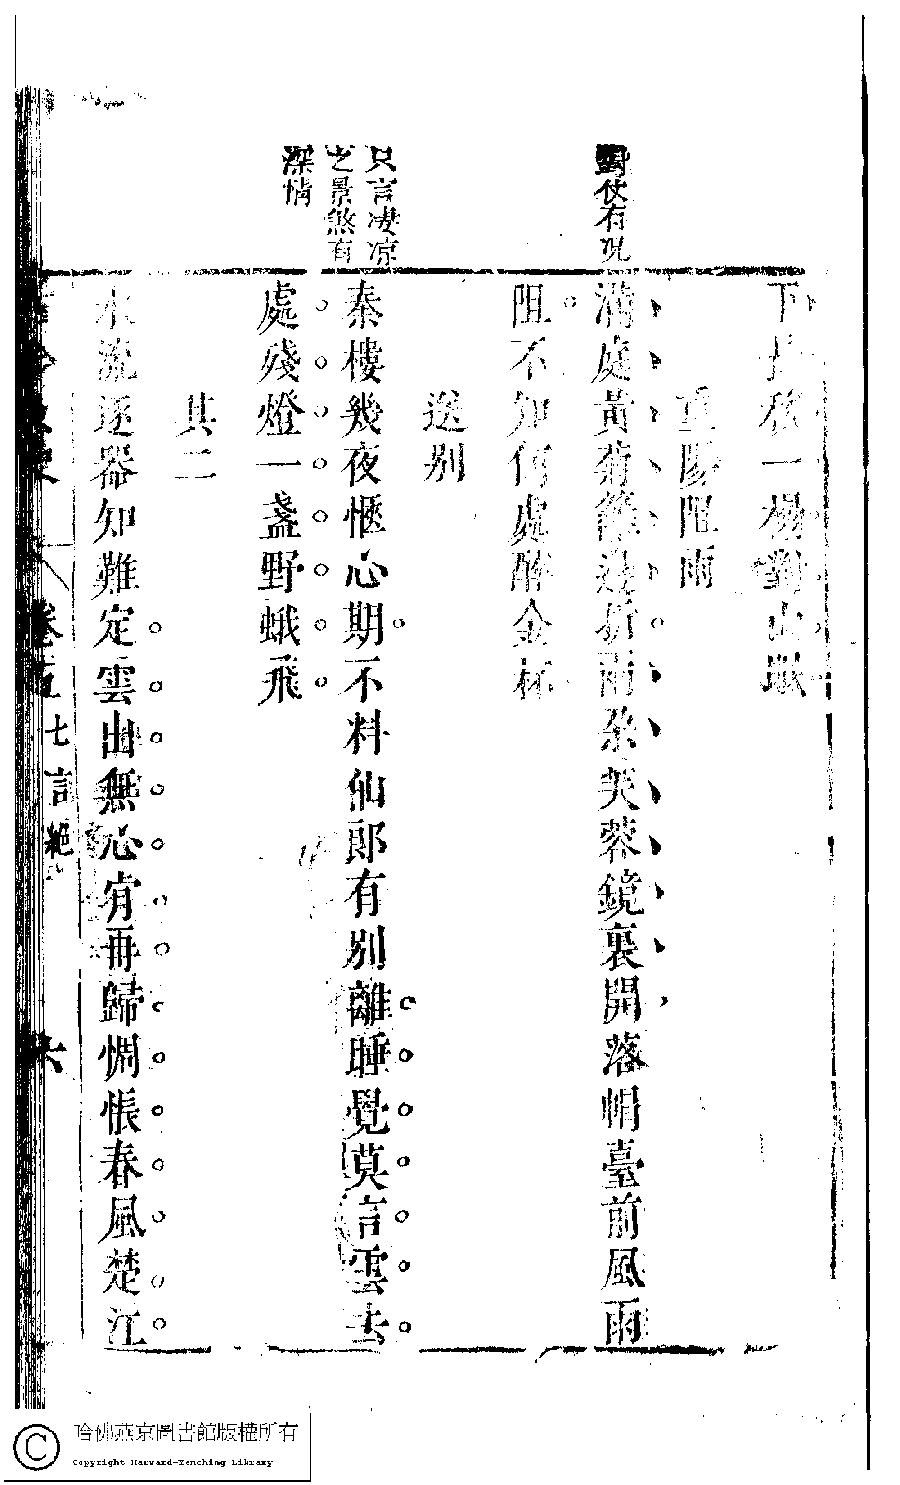 對仗有況
只言凄凉
之景煞有
深情
下長秋一榻對山眠
重陽阻雨
滿庭黃菊籬邊折兩朶芙蓉鏡裏開落帽臺前風雨
阻不知何處醉金杯
送別
秦樓幾夜愜心期不料仙郎有別離睡覺莫言雲去
處殘燈一盞野蛾飛
其二
水流逐器知難定雲出無心肯再歸惆悵春風楚江
卷五 七言絕 六
哈佛燕京圖書館版權所有
Copyright Harvard-Yenching Library